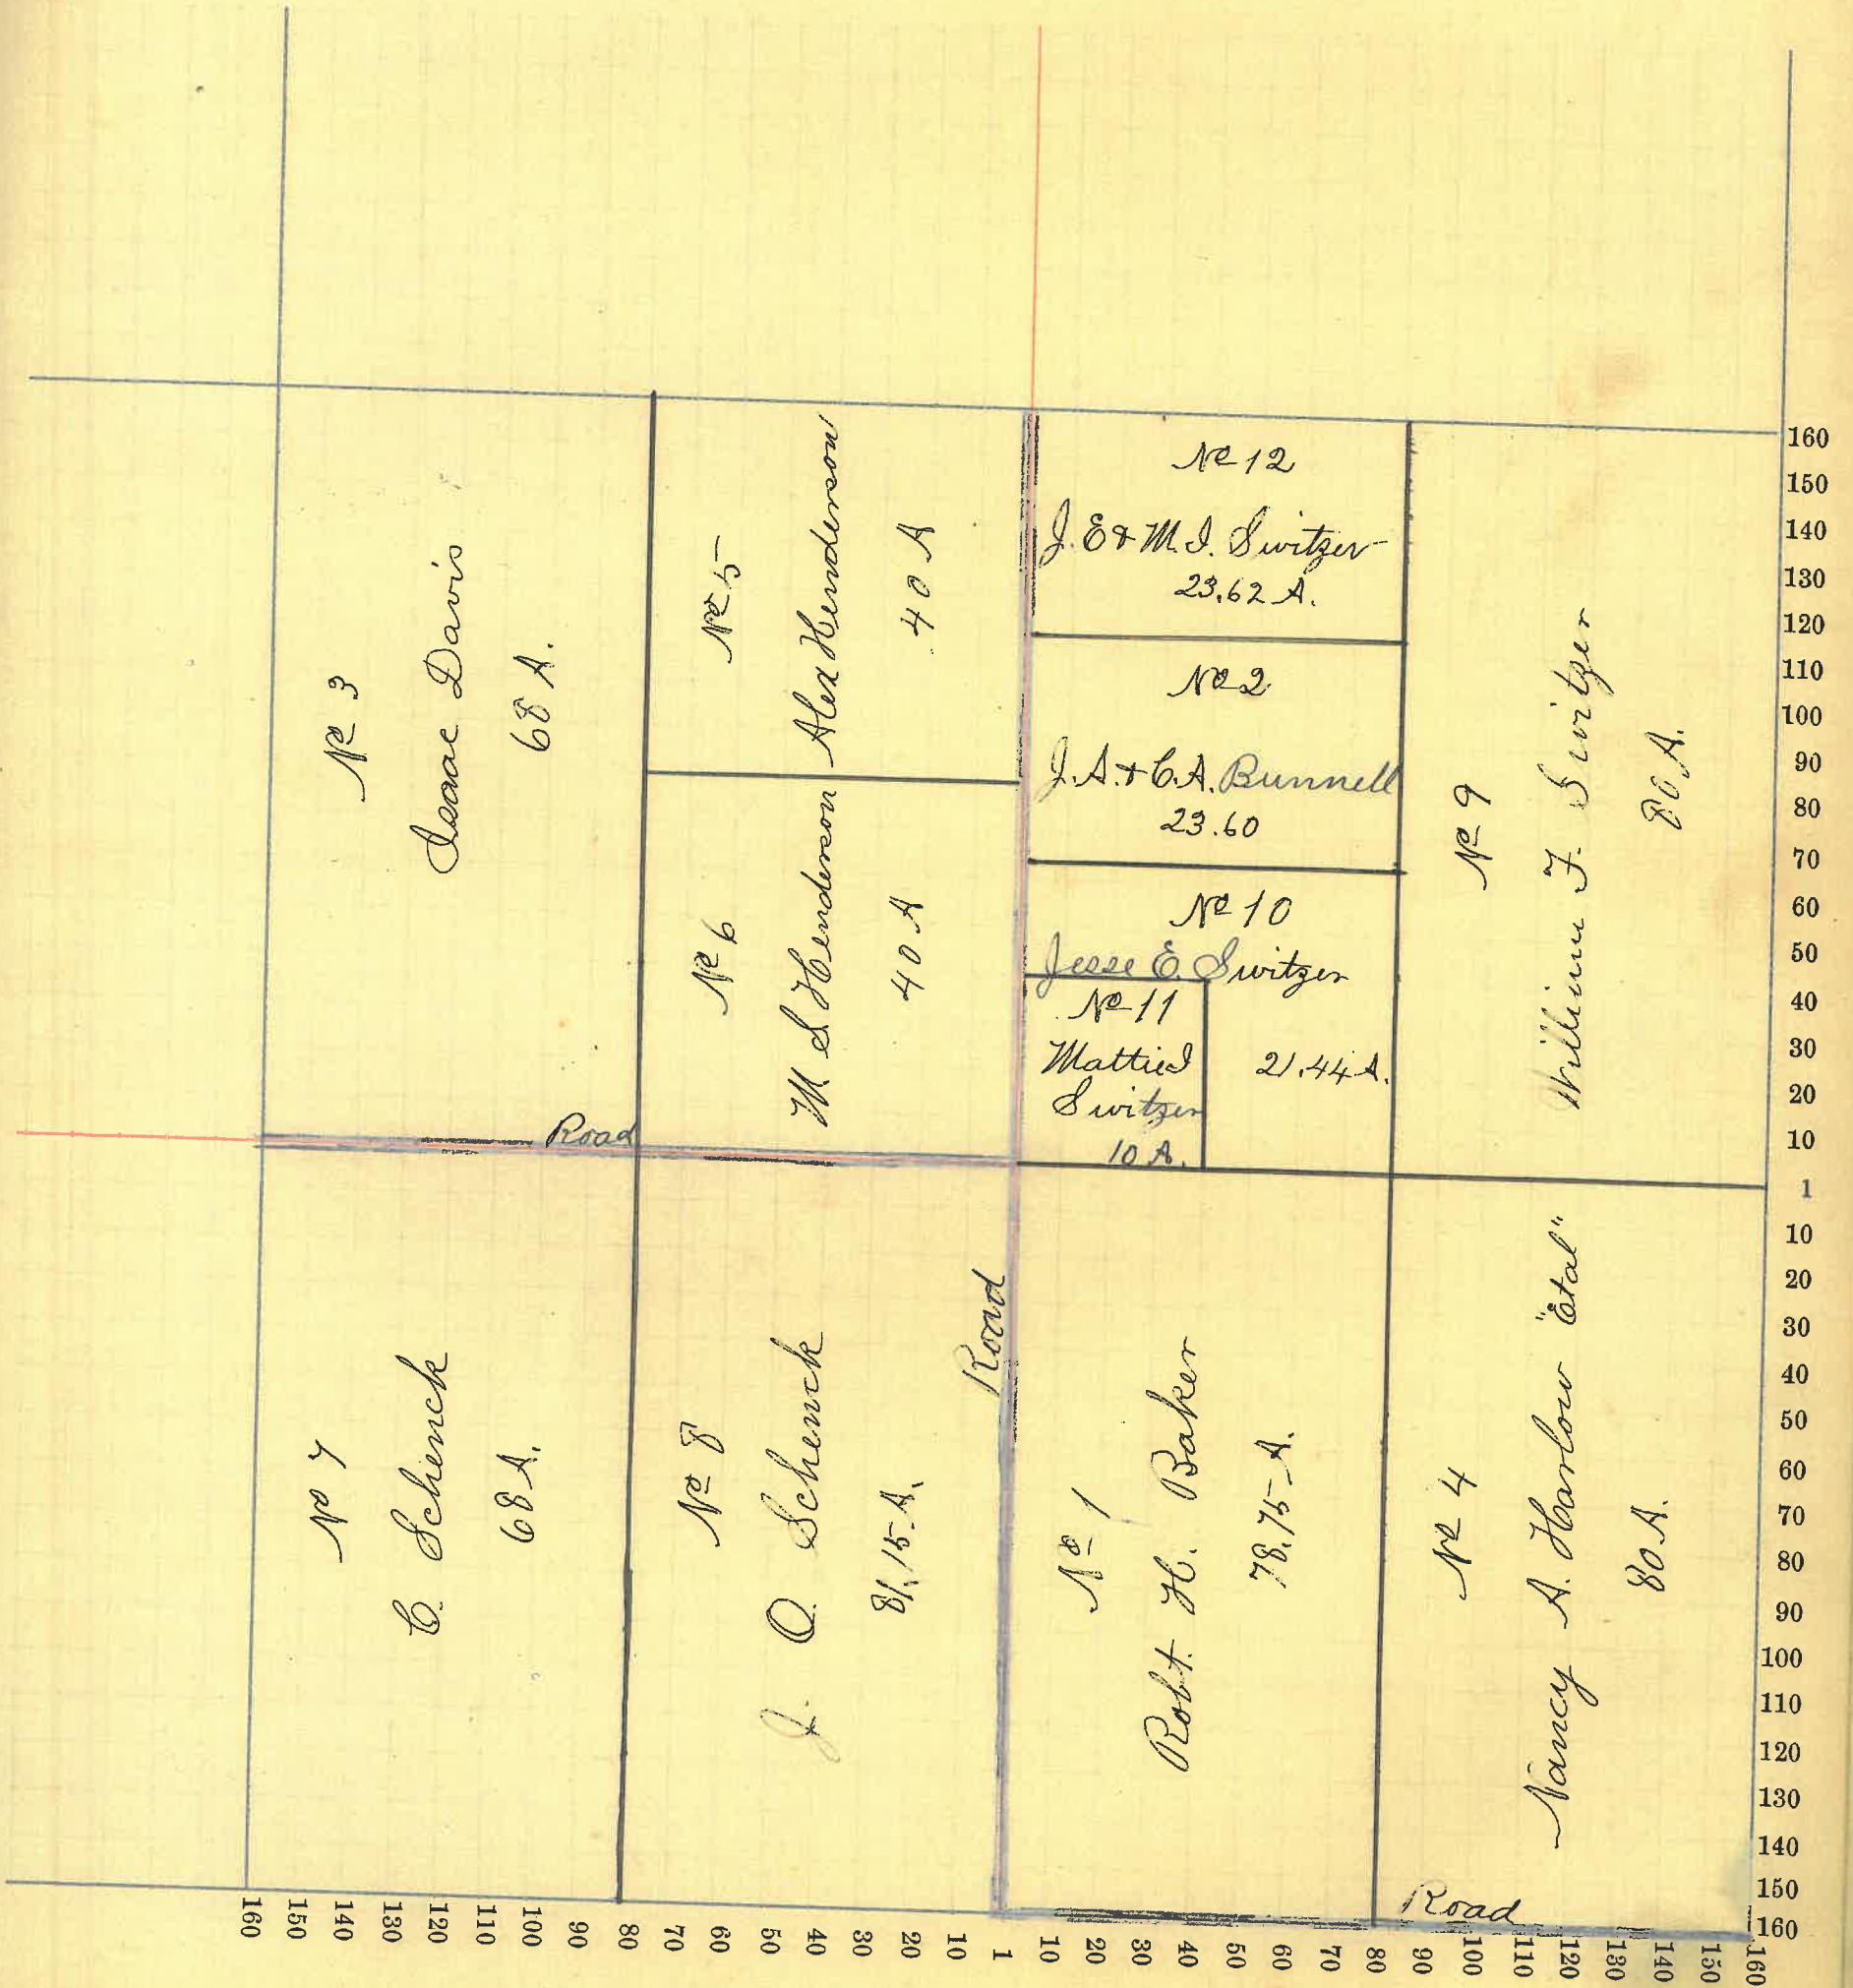 Nº 3
Isaac Davis
68 A.
Nº 5
Alex Henderson
40 A
Nº 6
M S Henderson
40 A
Nº 12
J. E & M. I. Switzer
23.62 A.
Nº 2
J. A. & C. A. Bunnell
23.60
Nº 10
Jesse E. Switzer
21.44 A.
Nº 11
Mattie I
Switzer
10 A.
Nº 9
William F. Switzer
80 A.
Road
Nº 7
C. Schenck
68 A.
Nº 8
J. O. Schenck
81.15 A.
Road
Nº 1
Robt. H. Baker
78.75 A.
Nº 4
Nancy A. Harlow "Etal"
80 A.
Road
160
150
140
130
120
110
100
90
80
70
60
50
40
30
20
10
1
10
20
30
40
50
60
70
80
90
100
110
120
130
140
150
160
160 150 140 130 120 110 100 90 80 70 60 50 40 30 20 10 1 10 20 30 40 50 60 70 80 90 100 110 120 130 140 150 160